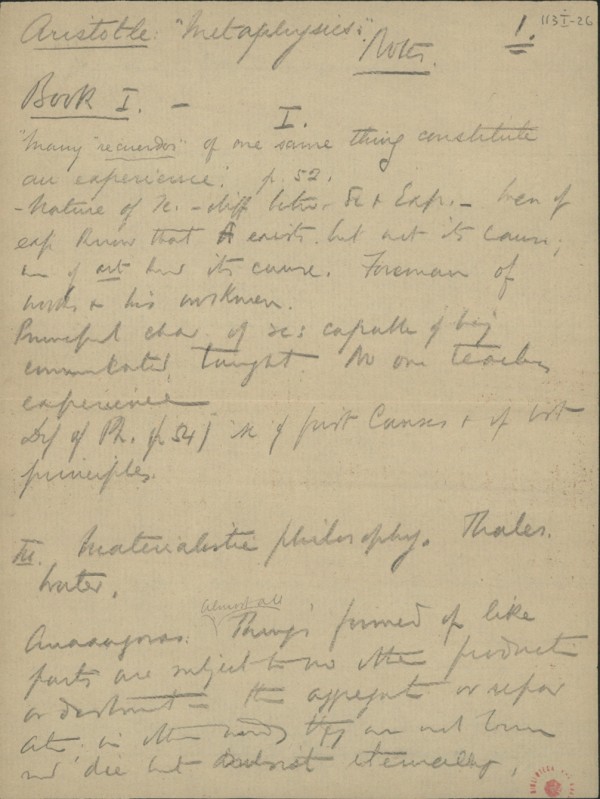 Aristotle: "Metaphysics".
Notes.
1.
113 I-26
Book I. -
I.
"Many "recuerdos" of one same thing constitute
an experience". p. 52.
- Nature of Sc. - diff betw. Sc & Exp. - Men of
exp know that A exists but not its cause;
men of art know its cause. Foreman of
works & his workmen.
Principal char. of sc: capable of being
communicated, taught. No one teaches
experience
Def of Ph. (p. 54) sc of first Causes & of
principles.
III. Materialistic philosophy. Thales.
Water.
almost all
Anaxagoras: Things formed of like
parts are subject to no other production
or destruction the aggregate or separ
ation in other words they are not born
nor die but subsist eternally,
BIBLIOTECA